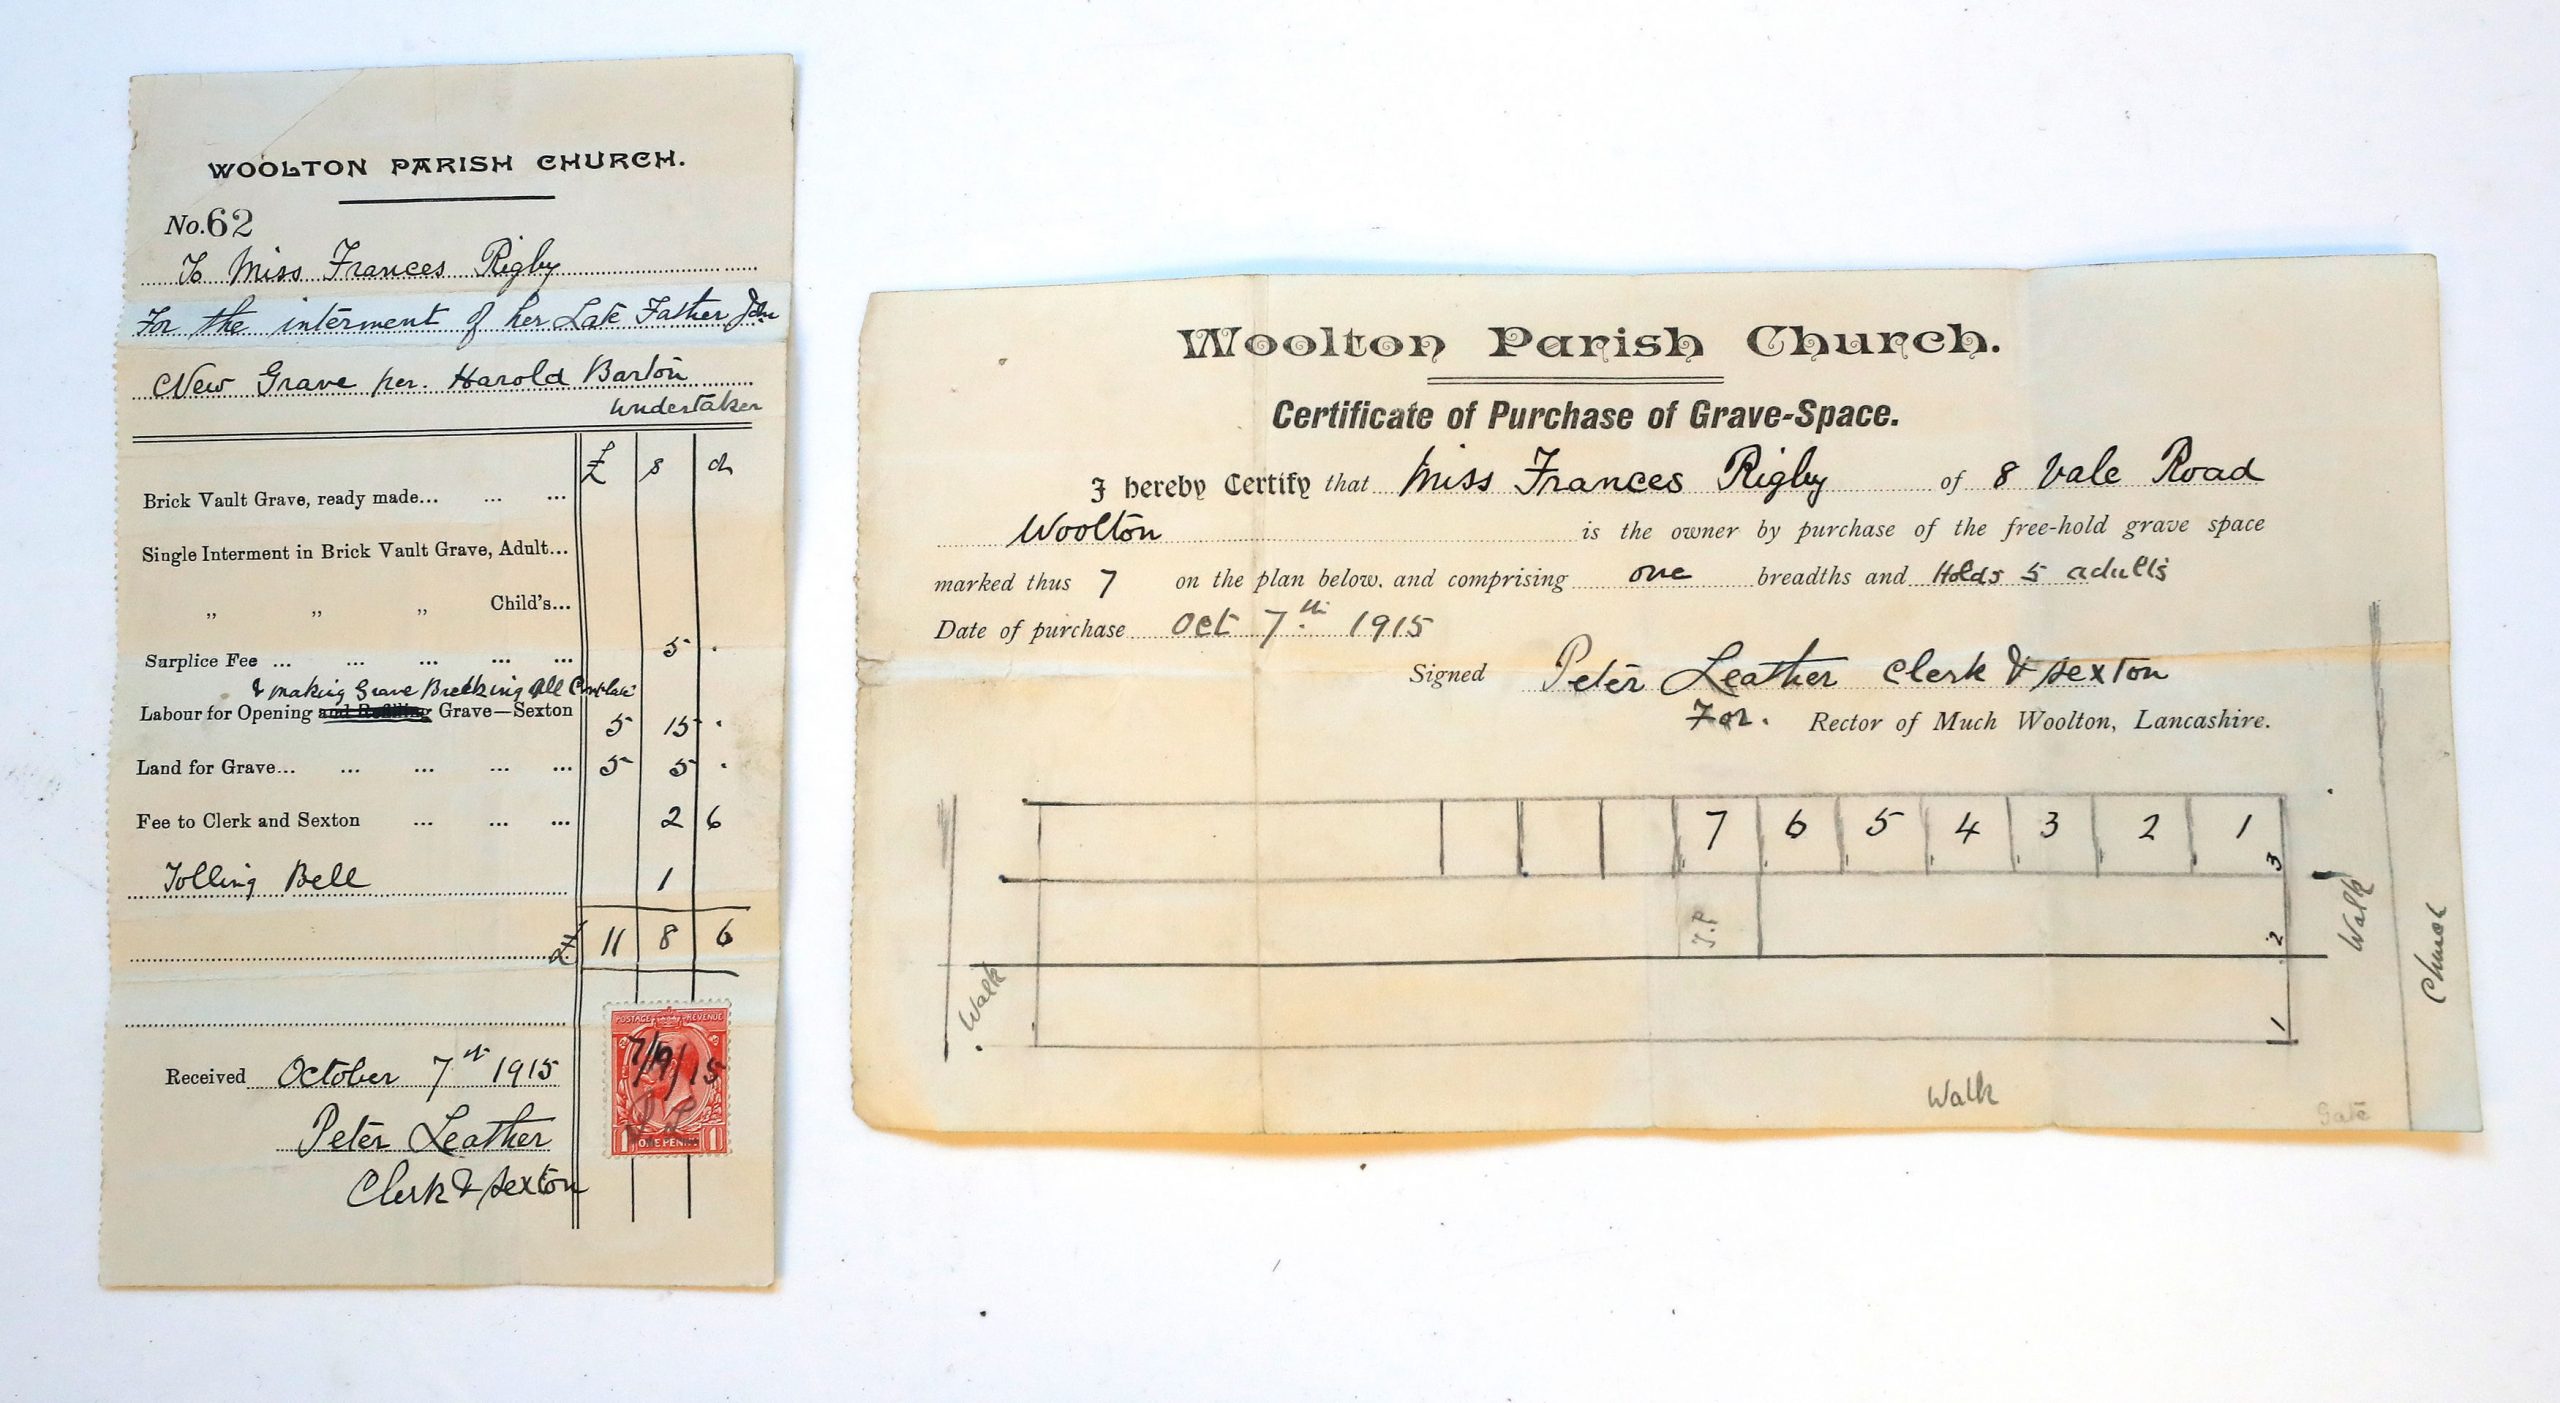 WOOLTON PARISH CHURCH.
No. 62
To Miss Frances Rigby
For the interment of her Late Father John
New Grave per. Harold Barton
Undertaker
£ s d
Brick Vault Grave, ready made... ... ...
Single Interment in Brick Vault Grave, Adult...
„ „ „ Child's...
Surplice Fee ... ... ... ... ... 5 .
& making Grave Bricking all Complete
Labour for Opening and Refilling Grave—Sexton 5 15 .
Land for Grave... ... ... ... ... 5 5 .
Fee to Clerk and Sexton ... ... ... 2 6
Tolling Bell 1
11 8 6
POSTAGE REVENUE
7/10/15
P L
1 ONE PENNY 1
Received October 7th 1915
Peter Leather
Clerk & Sexton
Woolton Parish Church.
Certificate of Purchase of Grave-Space.
I hereby Certify that Miss Frances Rigby of 8 Vale Road
Woolton is the owner by purchase of the free-hold grave space
marked thus 7 on the plan below, and comprising one breadths and Holds 5 adults
Date of purchase Oct 7th 1915
Signed Peter Leather Clerk & Sexton
For. Rector of Much Woolton, Lancashire.
7 6 5 4 3 2 1
3
2
1
Walk
Walk
Church
Walk
Gate